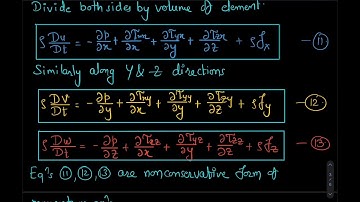 Divide both sides by volume of element:
ρ Du/Dt = -∂p/∂x + ∂τxx/∂x + ∂τyx/∂y + ∂τzx/∂z + ρfx — (11)
Similarly along Y & Z directions
ρ Dv/Dt = -∂p/∂y + ∂τxy/∂x + ∂τyy/∂y + ∂τzy/∂z + ρfy — (12)
ρ Dw/Dt = -∂p/∂z + ∂τxz/∂x + ∂τyz/∂y + ∂τzz/∂z + ρfz — (13)
Eqⁿs (11), (12), (13) are nonconservative form of